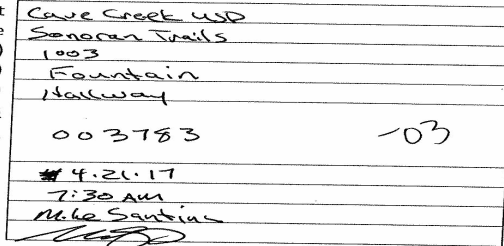 Cave Creek USD
Sonoran Trails
1003
Fountain
Hallway
003783 -03
4.21.17
7:30 AM
Mike